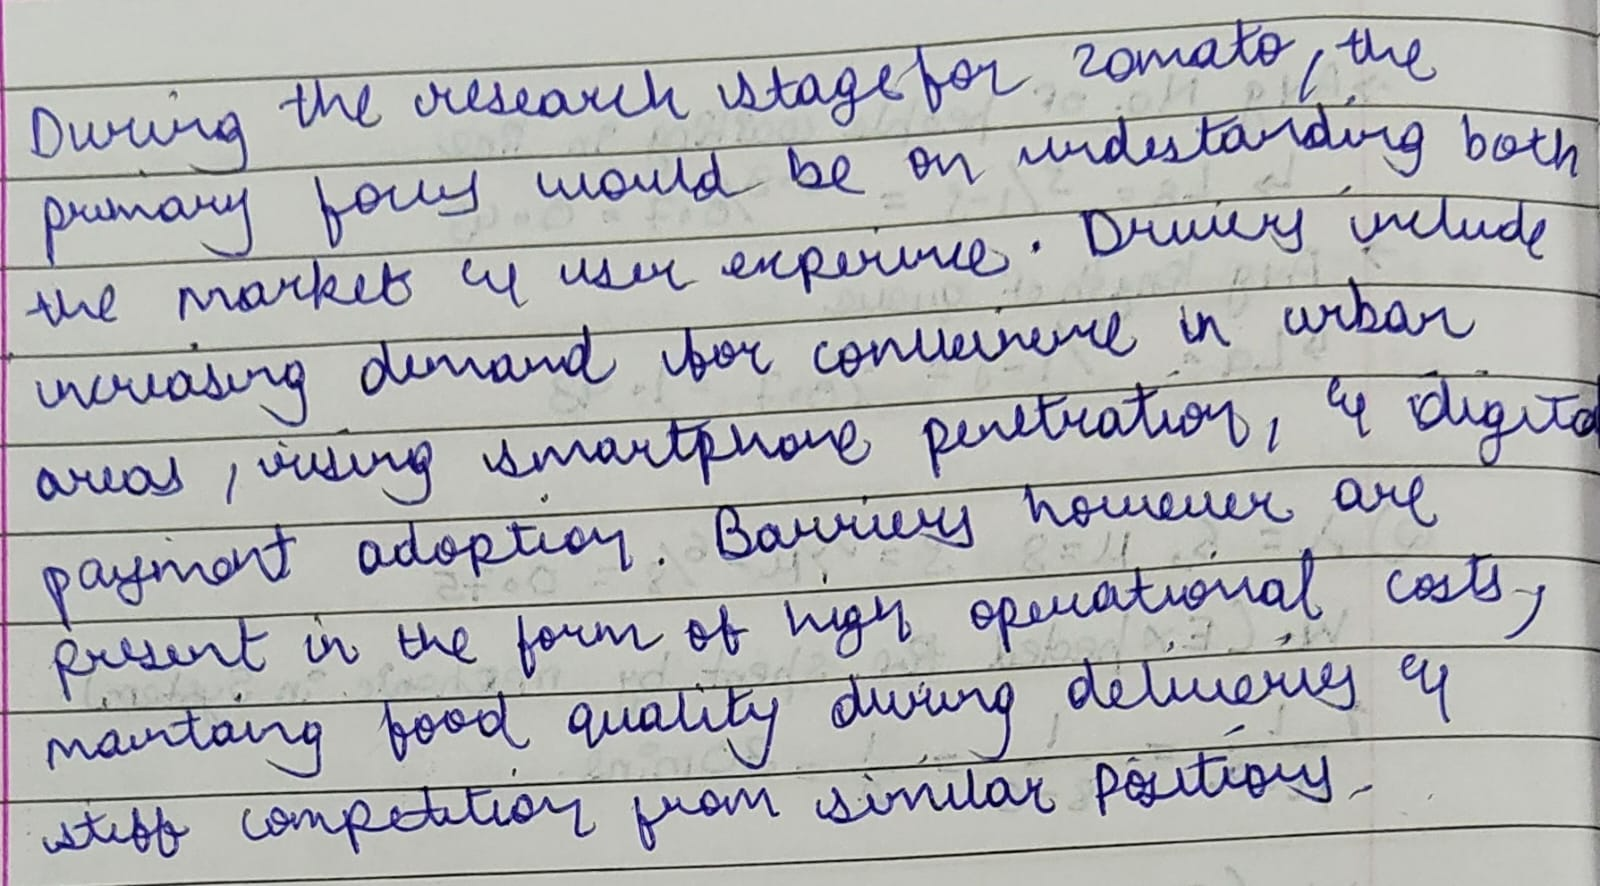 During the research stage for zomato, the
primary focus would be on undestanding both
the market & user experience. Drivers include
increasing demand for convenience in urban
areas, rising smartphone penetration, & digital
payment adoption. Barriers however are
present in the form of high operational costs,
maintaing food quality during deliveries &
stiff competition from similar positions.